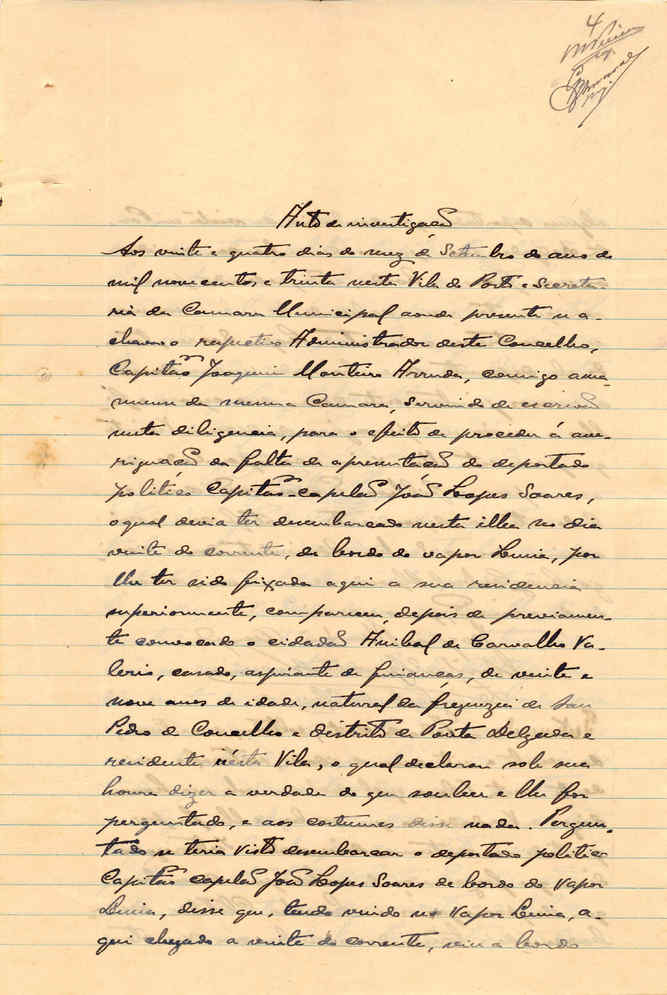 4
Auto de investigação
Aos vinte e quatro dias do mez de Setembro do ano de
mil novecentos e trinta nesta Vila do Porto e Secreta-
ria da Camara Municipal aonde presente se a-
chava o respectivo Administrador deste Concelho,
Capitão Joaquim Monteiro Arruda, comigo ama-
nuense da mesma Camara, servindo de escrivão
nesta diligencia, para o efeito de proceder á ave-
riguação da falta da apresentação do deportado
politico Capitão-capelão João Lopes Soares,
o qual devia ter desembarcado nesta ilha no dia
vinte do corrente, de bordo do vapor Lima, por
lhe ter sido fixada aqui a sua residencia
superiormente, compareceu, depois de previamen-
te convocado o cidadão Anibal de Carvalho Va-
lerio, casado, aspirante de finanças, de vinte e
nove anos de idade, natural da freguezia de San
Pedro do Concelho e distrito de Ponta Delgada e
residente nésta Vila, o qual declarou sob sua
honra dizer a verdade do que souber e lhe for
perguntado, e aos costumes disse nada. Pergun-
tado se teria visto desembarcar o deportado politico
Capitão capelão João Lopes Soares de bordo do Vapor
Lima, disse que, tendo vindo no Vapor Lima, a-
qui chegado a vinte do corrente, veiu a bordo